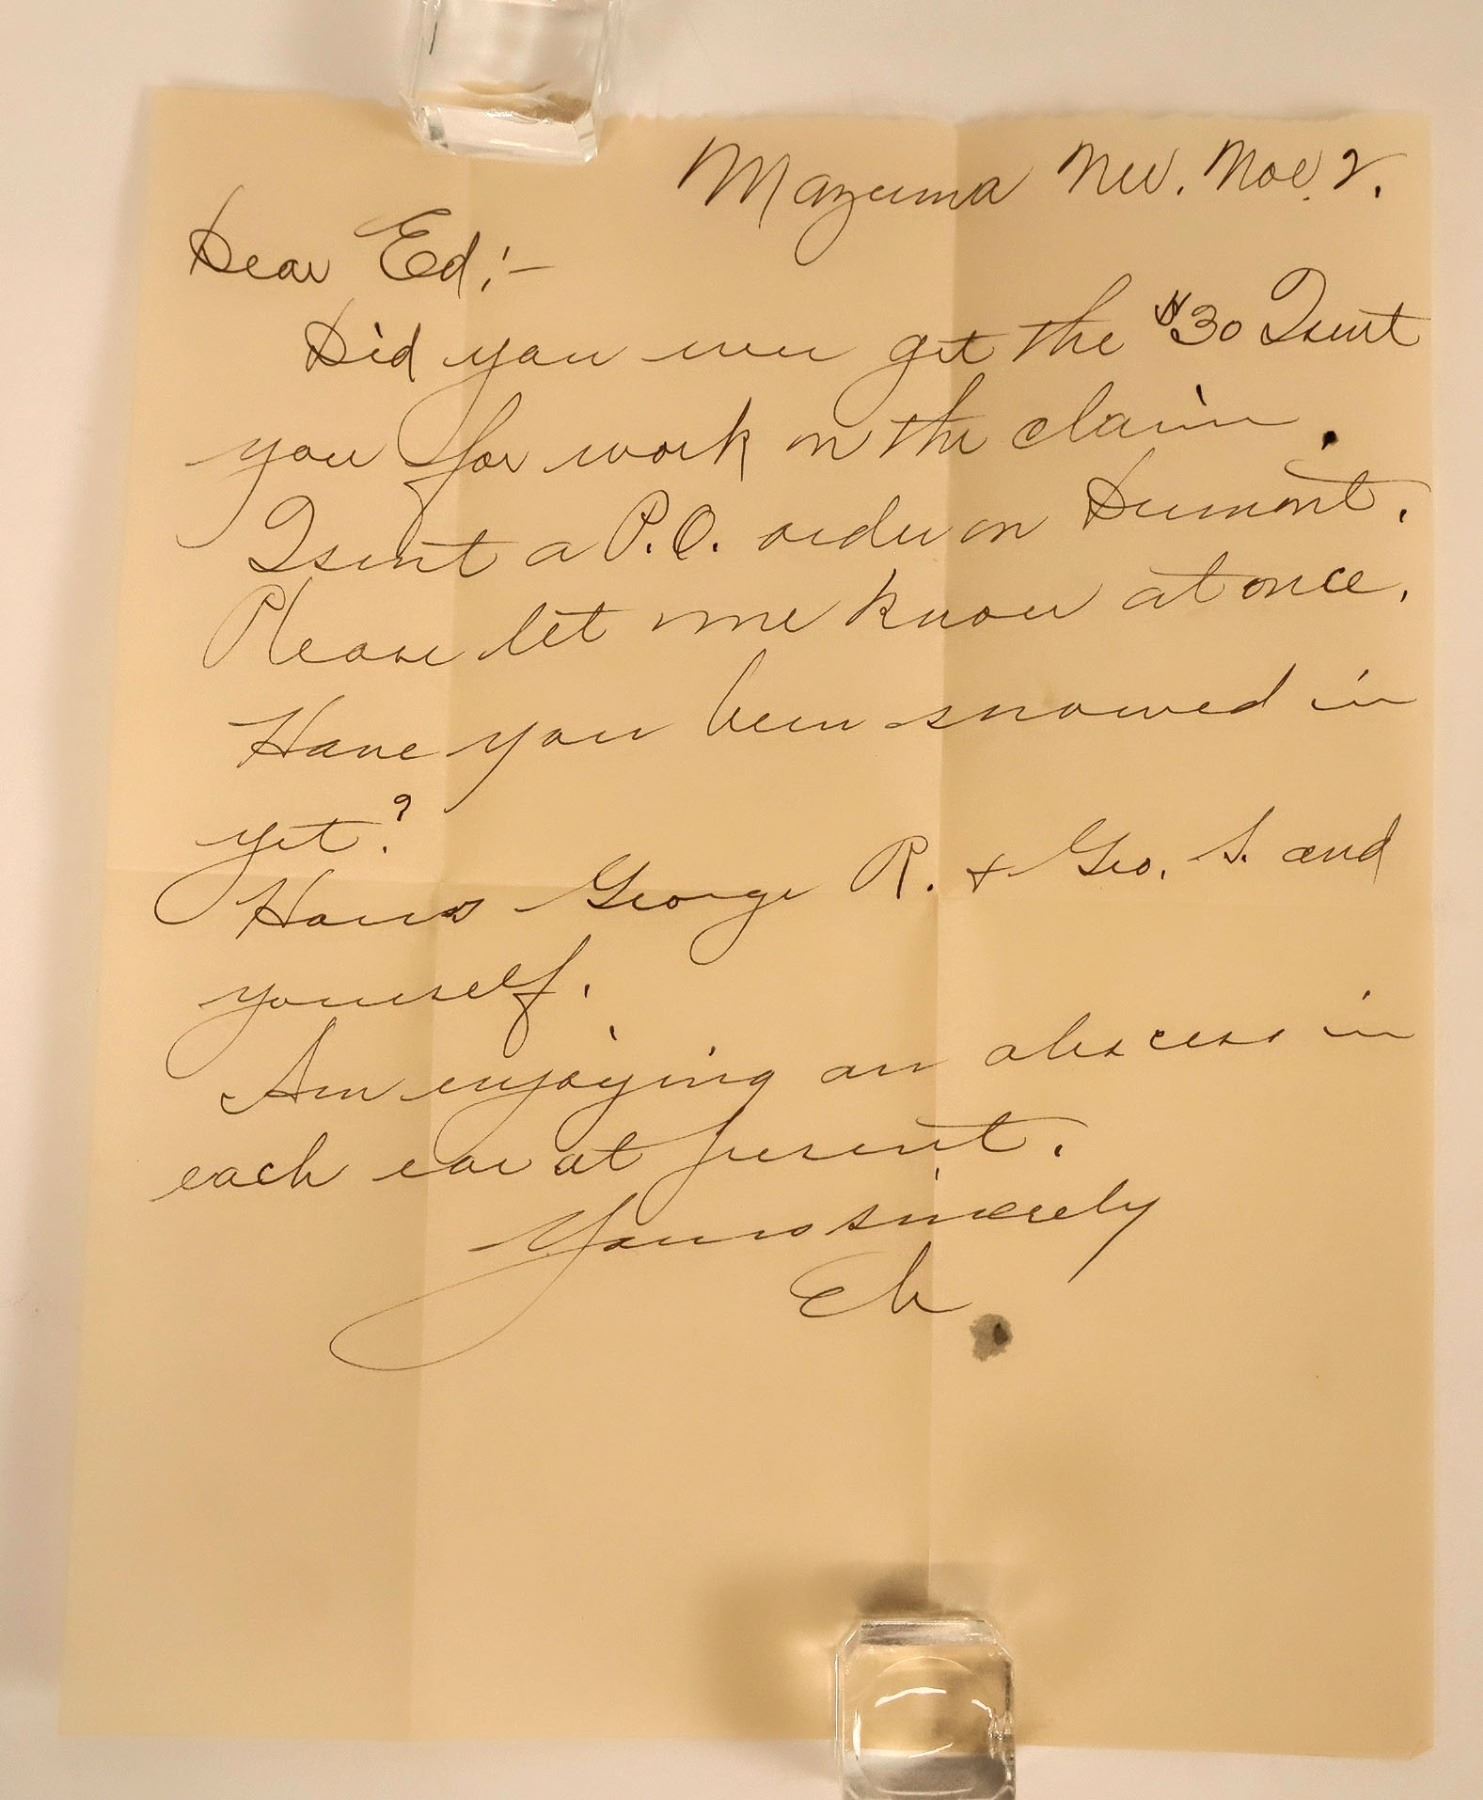 Mazuma Nev. Nov. 2.
Dear Ed:-
Did you ever get the $30 I sent
you for work on the claim.
I sent a P.O. order on Dumont.
Please let me know at once.
Have you been snowed in
yet?
George R. & Geo. S. and
yourself.
Am enjoying an abscess in
each ear at present.
Yours sincerely
Eb.